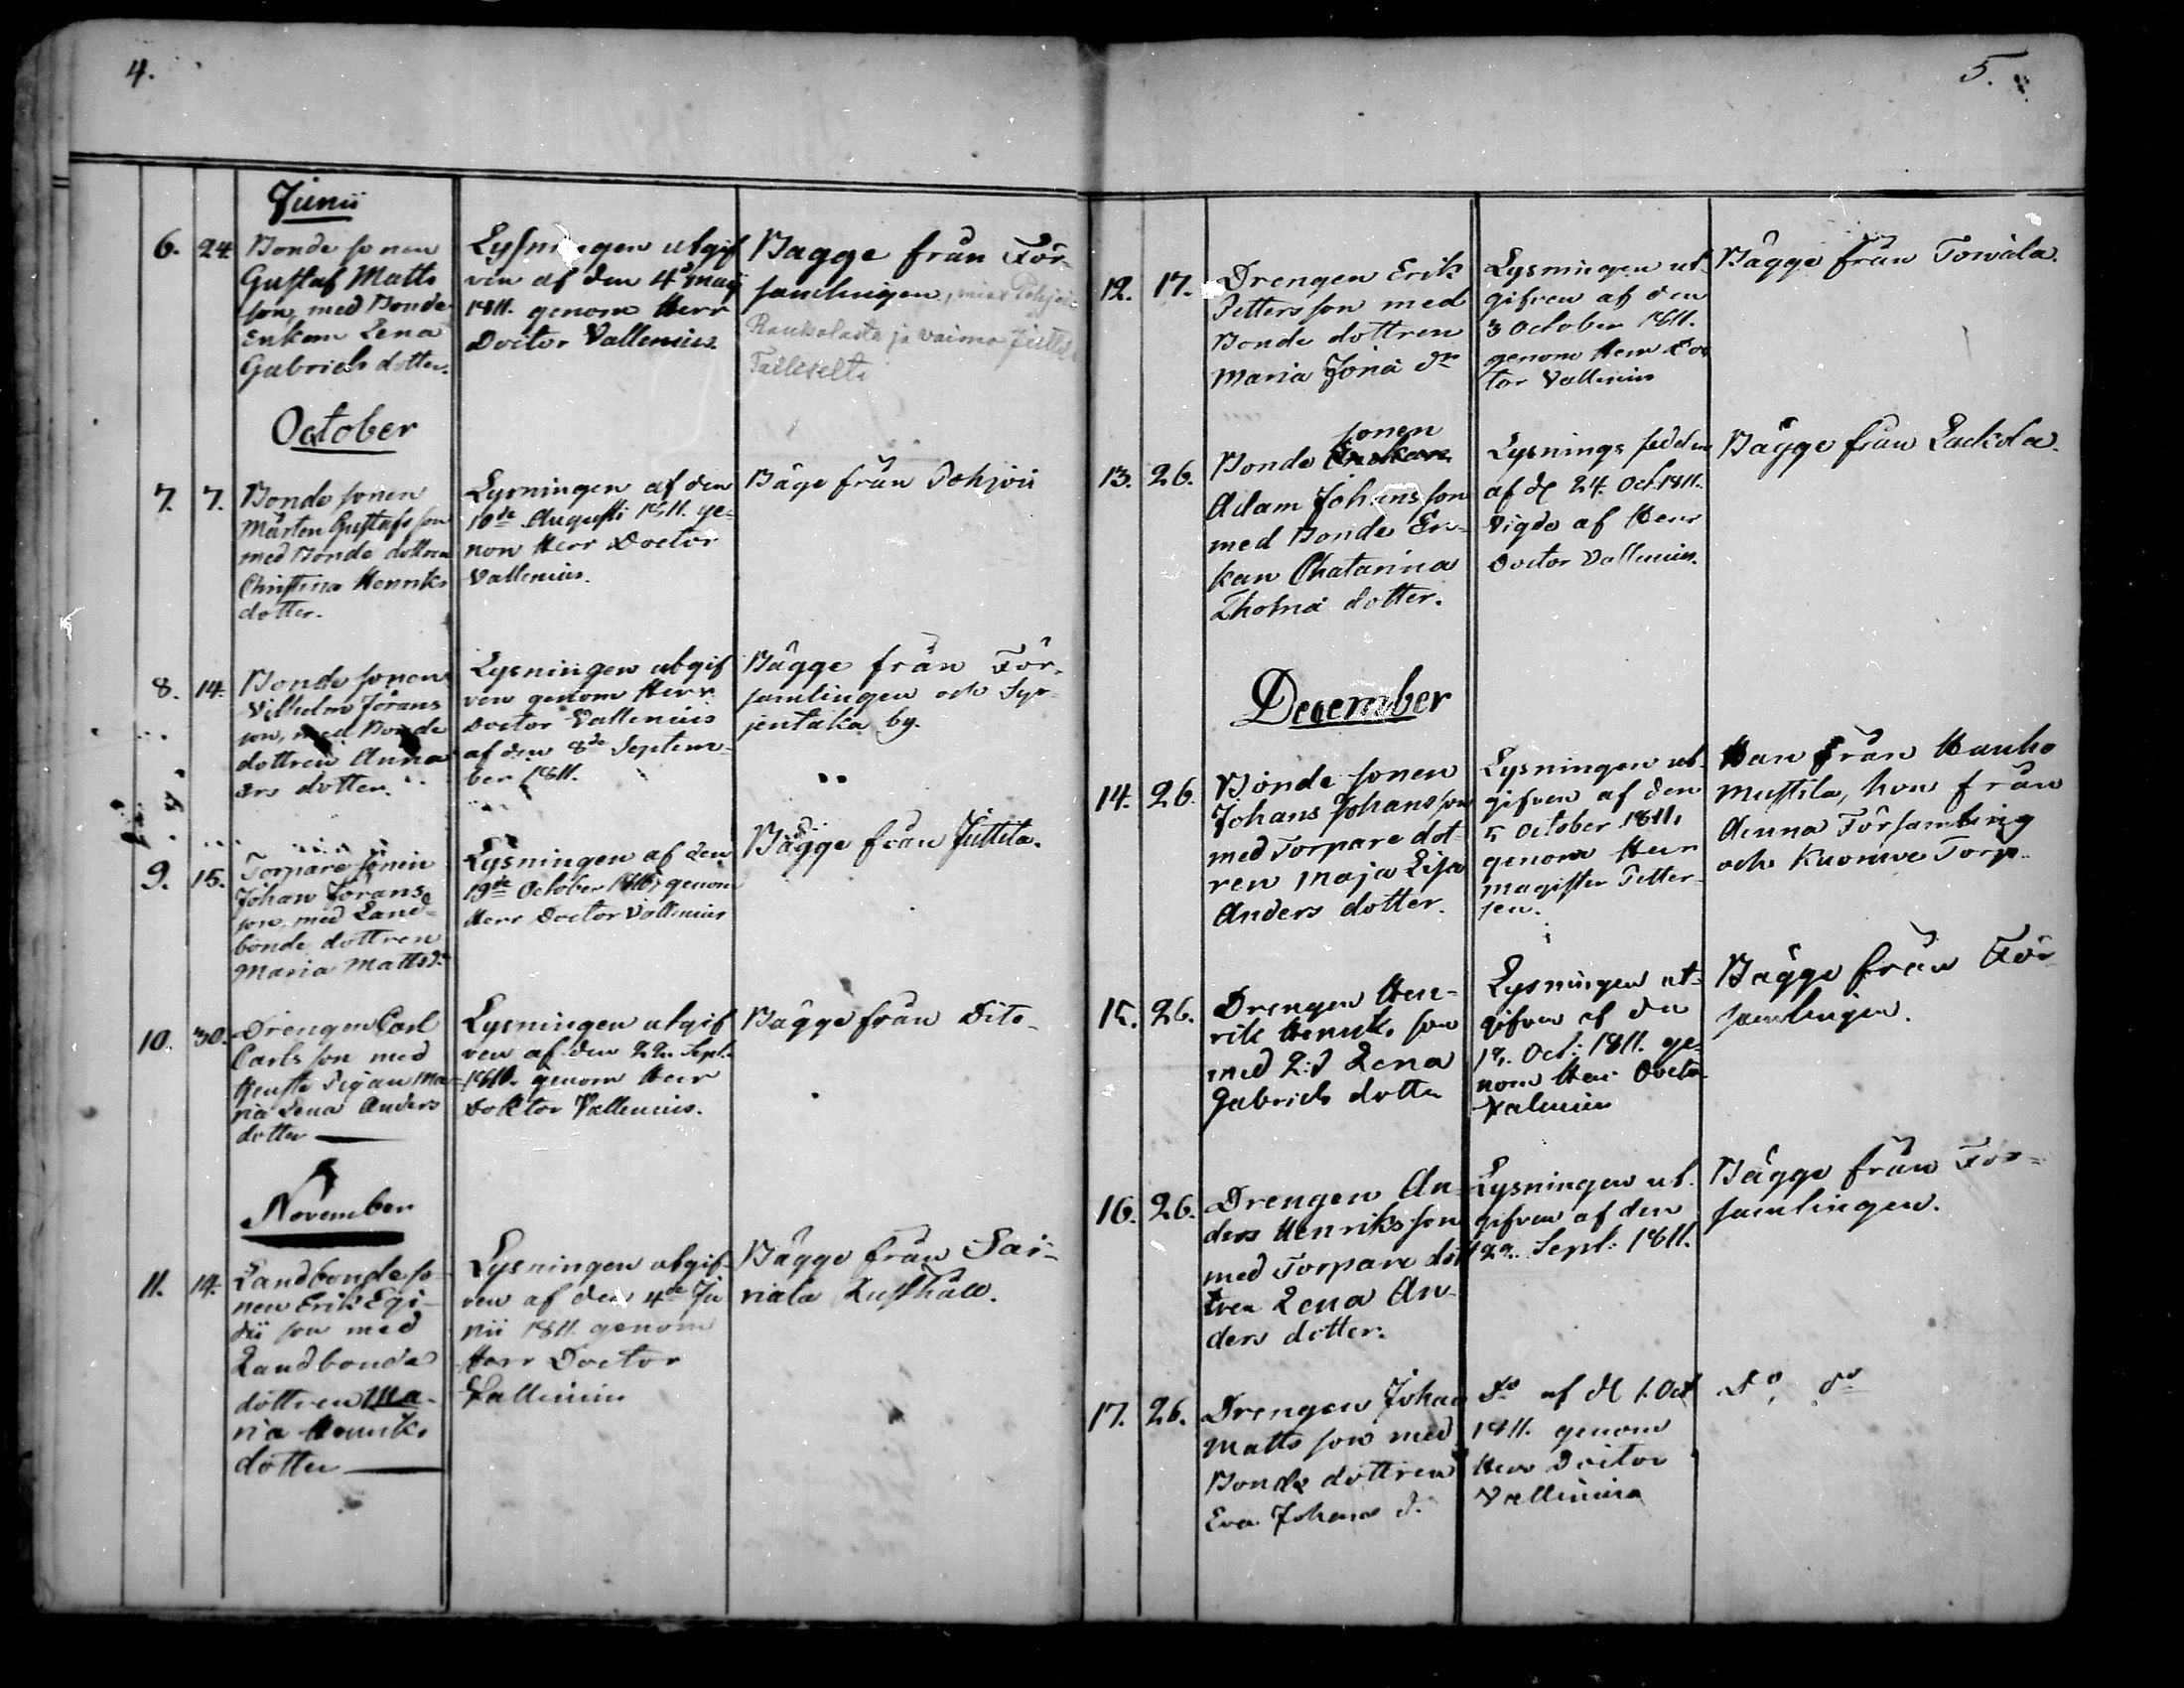 4.
Junii
6. 24.
Bonde sonen
Gustaf Matts
son, med Bonde
Enkan Lena
Gabriels dotter.
Lysningen utgif
ven af den 4de Maij
1811. genom Herr
Doctor Vallenius.
Bagge från För-
samlingen, mies Pohjois
Raukolasta ja vaimo Juttila
Tailiselta
October
7. 7.
Bonde sonen
Mårten Gustafs son
med Bonde dottren
Christina Henriks
dotter.
Lysningen af den
10de Augusti 1811. ge-
nom Herr Doctor
Vallenius.
Båge från Pohjois
8. 14.
Bonde sonen
Vilhelm Jörans
son, med Bonde
dottren Anna
Ers dotter.
Lysningen utgif
ven genom Herr
Doctor Vallenius
af den 8de Septem-
ber 1811.
Bägge från För-
samlingen och Syr-
jentaka by.
9. 15.
Torpare sonen
Johan Jörans
son, med Land-
bonde dottren
Maria Matts dr
Lysningen af den
19de October 1811, genom
Herr Doctor Vallenius
Bägge från Juttila.
10. 30.
Drengen Carl
Carls son med
Henste Pigan Ma-
ria Lena Anders
dotter
Lysningen utgif
ven af den 22. Sept.
1811. genom Herr
Doktor Vallenius.
Bägge från Dito
November
11. 14.
Landbonde so-
nen Erik Egi-
dii son med
Landbonde
dottren Ma-
ria Henriks
dotter
Lysningen utgif-
ven af den 4de Ju
nii 1811. genom
Herr Doctor
Vallenius
Bägge från Sai-
riala Rusthåll.
5.
12. 17.
Drengen Erik
Petters son med
Bonde dottren
Maria Jöra dr
Lysningen ut-
gifven af den
3 October 1811.
genom Herr Doc
tor Vallenius
Bägge från Towala.
13. 26.
sonen
Bonde
Adam Johans son
med Bonde En-
kan Chatarina
Thoma dotter.
Lysnings sedeln
af d 24. Oct. 1811.
Vigde af Herr
Doctor Vallenius.
Bägge från Lackola.
December
14. 26.
Bonde sonen
Johans Johans son
med Torpare dot-
ren Maja Lisa
Anders dotter.
Lysningen ut-
gifven af den
5 October 1811.
genom Herr
Magister Petter-
sen.
Han från Hauho
Mustila, hon från
denna Församling
och Kuomwe Torp.
15. 26.
Drengen Hen-
rik Henriks son
med 2:d Lena
Gabriels dotter
Lysningen ut-
gifven af den
12. Oct: 1811. ge-
nom Herr Doctor
Valenius
Bägge från För
samlingen.
16. 26.
Drengen An-
ders Henriks son
med Torpare dot
tren Lena An-
ders dotter.
Lysningen ut-
gifven af den
22. Sept: 1811.
Bägge från För-
samlingen.
17. 26.
Drengen Johan
Matts son med
Bonde dottren
Eva Johans d.
Do af d 1. Oct
1811. genom
Herr Doctor
Vallenius
Do, do